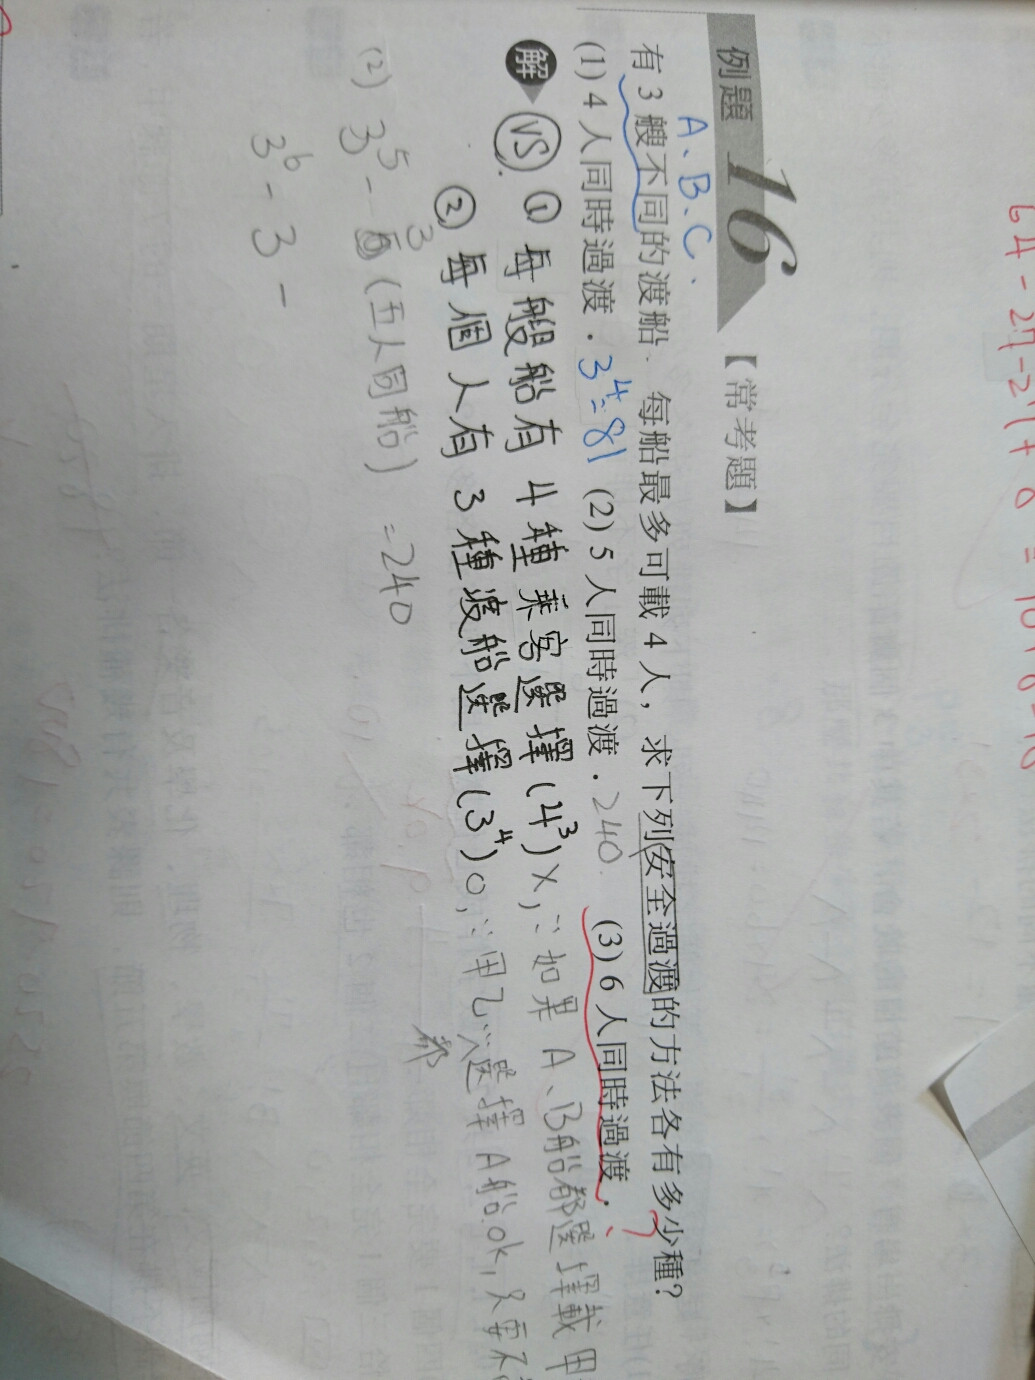 64-27-27+8=
例題 16 【常考題】
A、B、C、
有 3 艘不同的渡船. 每船最多可載 4 人，求下列安全過渡的方法各有多少種?
(1) 4 人同時過渡. 3⁴=81 (2) 5 人同時過渡. 240. (3) 6 人同時過渡.
解 VS. ① 每艘船有 4 種乘客選擇 (4³) X, ∵ 如果 A、B船都選擇載甲
② 每個人有 3 種渡船選擇 (3⁴) O, ∵ 甲乙…選擇 A船ok, 只要不
都
(2) 3⁵ - 3 (五人同船) = 240
3⁶ - 3 -